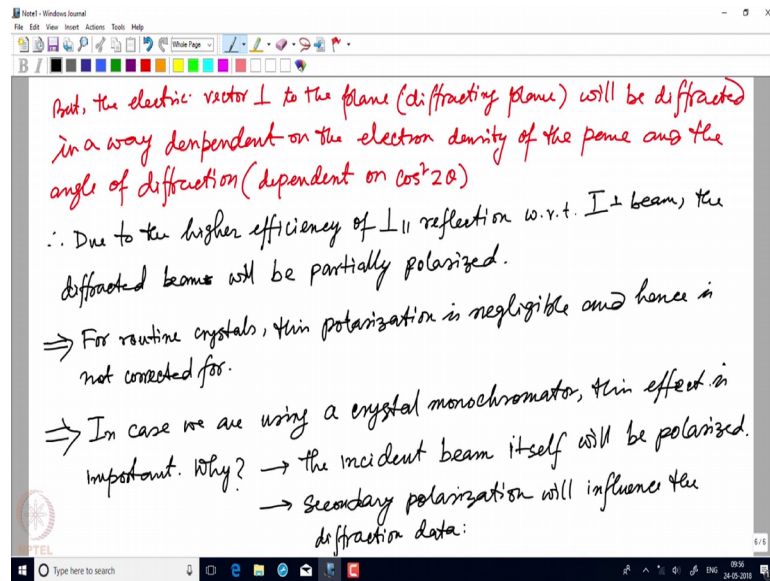 Note1 - Windows Journal
File Edit View Insert Actions Tools Help
Whole Page
B I
But, the electric vector ⊥ to the plane (diffracting plane) will be diffracted
in a way denpendent on the electron density of the pane and the
angle of diffraction (dependent on cos² 2θ)
∴ Due to the higher efficiency of I || reflection w.r.t. I ⊥ beam, the
diffracted beams will be partially polarized.
⇒ For routine crystals, this polarization is negligible and hence is
not corrected for.
⇒ In case we are using a crystal monochromator, this effect is
important. Why? → the incident beam itself will be polarized.
→ secondary polarization will influence the
diffraction data:
NPTEL
6/6
Type here to search
ENG
09:56
24-05-2018